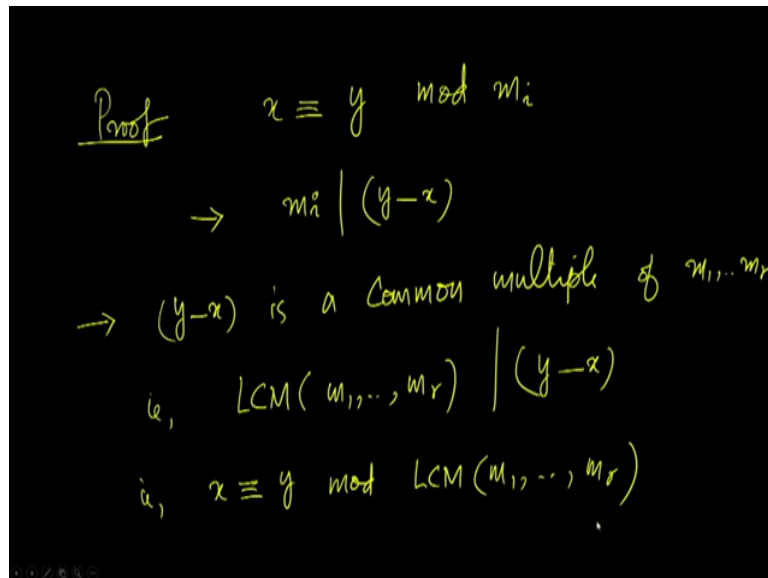 Proof x ≡ y mod mi
→ mi | (y-x)
→ (y-x) is a common multiple of m1,..mr
ie, LCM(m1,..,mr) | (y-x)
ie, x ≡ y mod LCM(m1,..,mr)